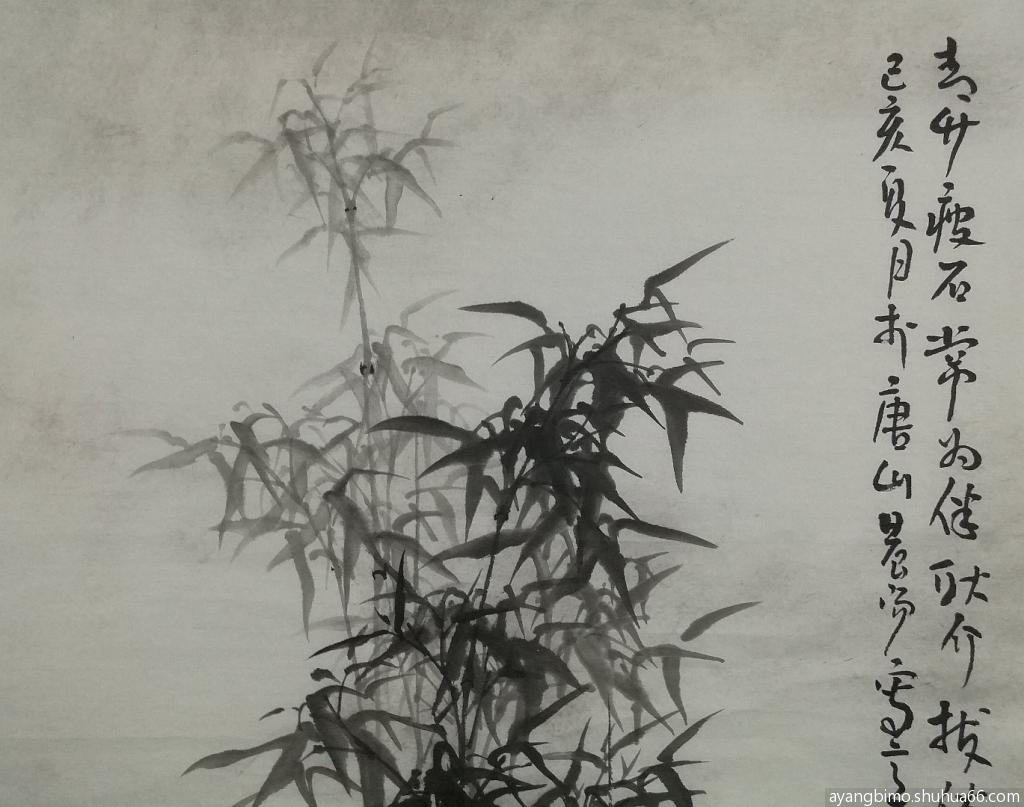 青竹瘦石常为伴耿介拔
己亥夏月于唐山晨阳写
ayangbimo.shuhua66.com